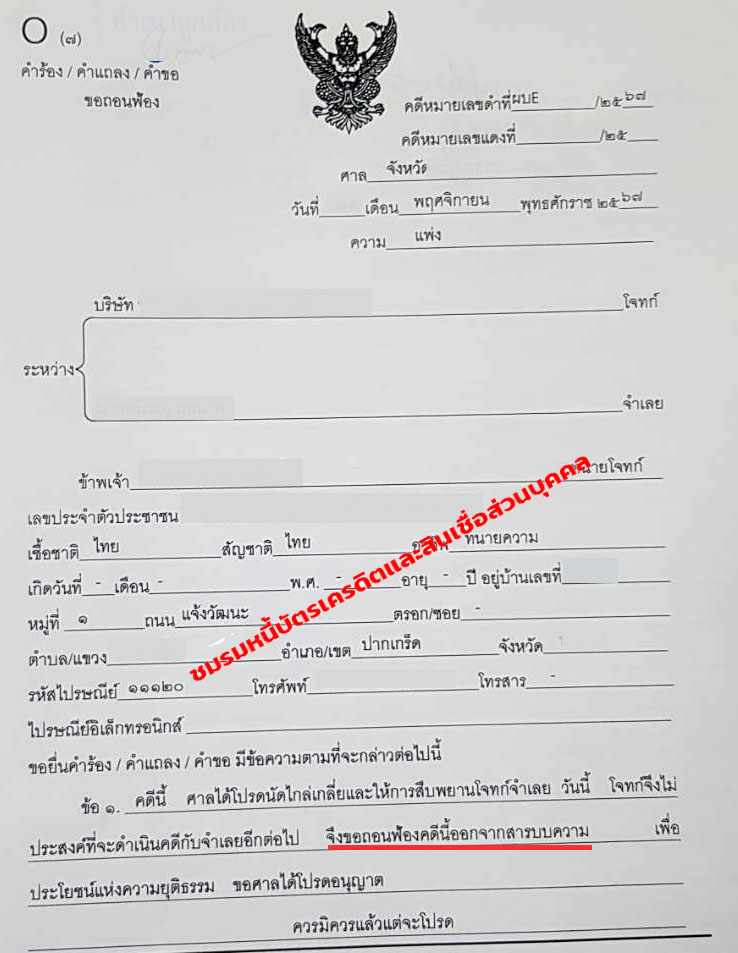 สำเนาถูกต้อง
(๗)
คำร้อง / คำแถลง / คำขอ
ขอถอนฟ้อง
คดีหมายเลขดำที่ ผบE /๒๕๖๗
คดีหมายเลขแดงที่ /๒๕
ศาล จังหวัด
วันที่ เดือน พฤศจิกายน พุทธศักราช ๒๕๖๗
ความ แพ่ง
บริษัท โจทก์
ระหว่าง
จำเลย
ข้าพเจ้า ทนายโจทก์
เลขประจำตัวประชาชน
เชื้อชาติ ไทย สัญชาติ ไทย ทนายความ
เกิดวันที่ - เดือน - พ.ศ. - อายุ - ปี อยู่บ้านเลขที่
หมู่ที่ ๑ ถนน แจ้งวัฒนะ ตรอก/ซอย -
ตำบล/แขวง อำเภอ/เขต ปากเกร็ด จังหวัด
รหัสไปรษณีย์ ๑๑๑๒๐ โทรศัพท์ โทรสาร -
ไปรษณีย์อิเล็กทรอนิกส์
ขอยื่นคำร้อง / คำแถลง / คำขอ มีข้อความตามที่จะกล่าวต่อไปนี้
ข้อ ๑. คดีนี้ ศาลได้โปรดนัดไกล่เกลี่ยและให้การสืบพยานโจทก์จำเลย วันนี้ โจทก์จึงไม่
ประสงค์ที่จะดำเนินคดีกับจำเลยอีกต่อไป จึงขอถอนฟ้องคดีนี้ออกจากสารบบความ เพื่อ
ประโยชน์แห่งความยุติธรรม ขอศาลได้โปรดอนุญาต
ควรมิควรแล้วแต่จะโปรด
ชมรมหนี้บัตรเครดิตและสินเชื่อส่วนบุคคล